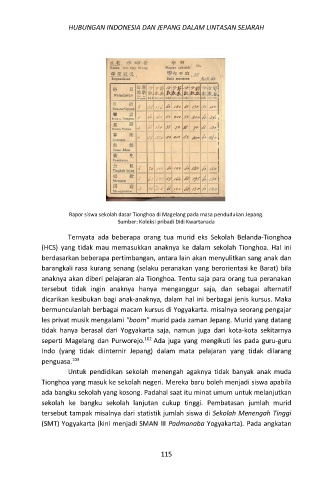 HUBUNGAN INDONESIA DAN JEPANG DALAM LINTASAN SEJARAH
Rapor siswa sekolah dasar Tionghoa di Magelang pada masa pendudukan Jepang.
Sumber: Koleksi pribadi Didi Kwartanada
Ternyata ada beberapa orang tua murid eks Sekolah Belanda-Tionghoa
(HCS) yang tidak mau memasukkan anaknya ke dalam sekolah Tionghoa. Hal ini
berdasarkan beberapa pertimbangan, antara lain akan menyulitkan sang anak dan
barangkali rasa kurang senang (selaku peranakan yang berorientasi ke Barat) bila
anaknya akan diberi pelajaran ala Tionghoa. Tentu saja para orang tua peranakan
tersebut tidak ingin anaknya hanya menganggur saja, dan sebagai alternatif
dicarikan kesibukan bagi anak-anaknya, dalam hal ini berbagai jenis kursus. Maka
bermunculanlah berbagai macam kursus di Yogyakarta. misalnya seorang pengajar
les privat musik mengalami "boom" murid pada zaman Jepang. Murid yang datang
tidak hanya berasal dari Yogyakarta saja, namun juga dari kota-kota sekitarnya
seperti Magelang dan Purworejo.102 Ada juga yang mengikuti les pada guru-guru
Indo (yang tidak diinternir Jepang) dalam mata pelajaran yang tidak dilarang
penguasa.103
Untuk pendidikan sekolah menengah agaknya tidak banyak anak muda
Tionghoa yang masuk ke sekolah negeri. Mereka baru boleh menjadi siswa apabila
ada bangku sekolah yang kosong. Padahal saat itu minat umum untuk melanjutkan
sekolah ke bangku sekolah lanjutan cukup tinggi. Pembatasan jumlah murid
tersebut tampak misalnya dari statistik jumlah siswa di Sekolah Menengah Tinggi
(SMT) Yogyakarta (kini menjadi SMAN III Padmanaba Yogyakarta). Pada angkatan
115